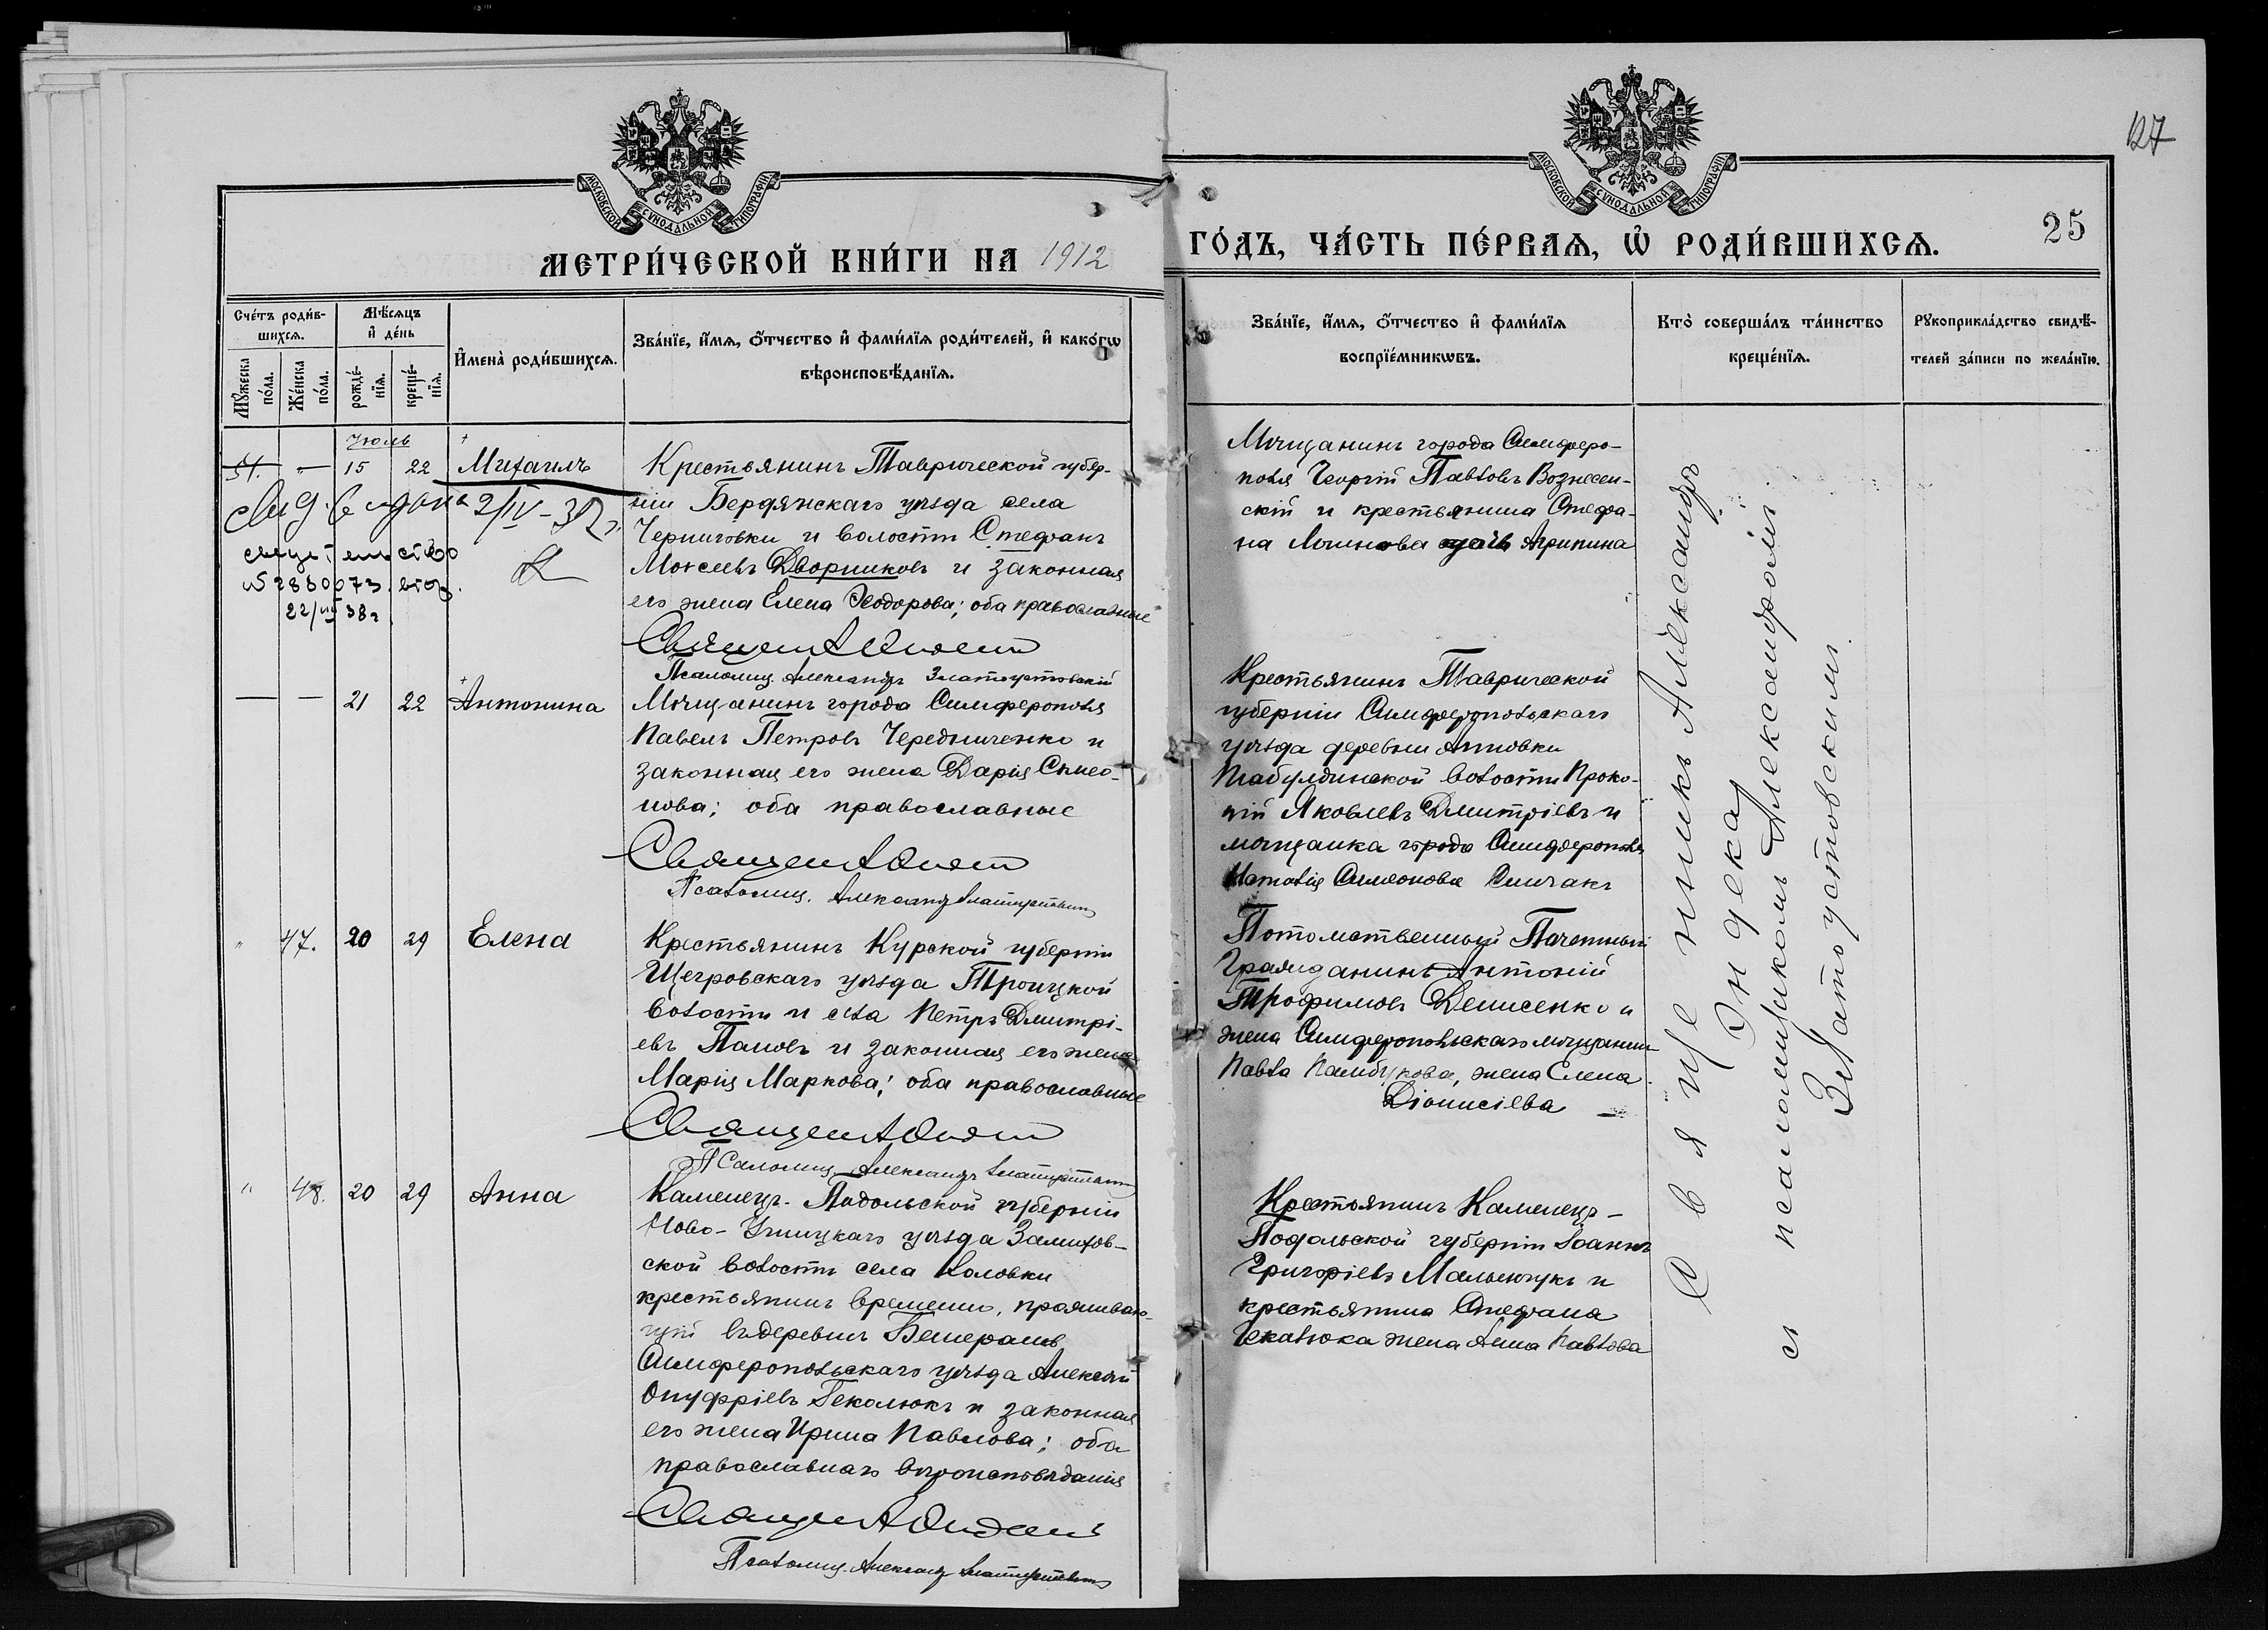 МОСКОВСКОЙ СѴНОДАЛЬНОЙ ТИПОГРАФІИ
МЕТРИ́ЧЕСКОЙ КНИ́ГИ НА 1912
Сче́тъ роди́в-
шихсѧ.
Мꙋ́жеска по́ла.
Же́нска по́ла.
Мѣ́сѧцъ
и҆ де́нь
рожде́-
нїѧ.
креще́-
нїѧ.
И҆мена̀ роди́вшихсѧ.
Зва́нїе, и҆́мѧ, ѻ҆́тчество и҆ фами́лїѧ роди́телей, и҆ како́гѡ
вѣроисповѣ́данїѧ.
Іюль
51. " 15 22 Михаилъ
Крестьянинъ Таврической губер-
ніи Бердянскаго уѣзда села
Черниговки и волости Стефанъ
Моѵсеевъ Дворниковъ и законная
его жена Елена Ѳеодорова; оба православные
Свид. выдана 2/IV-32 г.
№ 2880073
22/VII 38 г.
Псаломщ. Александръ Златоустовскій
— — 21 22 Антонина
Мѣщанинъ города Симферополя
Павелъ Петровъ Чередниченко и
законная его жена Дарія Симео-
нова; оба православные
Псаломщ. Александръ Златоустовскій
" 47. 20 29 Елена
Крестьянинъ Курской губерніи
Щегровскаго уѣзда Троицкой
волости и села Петръ Димитрі-
евъ Пановъ и законная его жена
Марія Маркова; оба православные
Псаломщ. Александръ Златоустовскій
" 48. 20 29 Анна
Каменецъ-Подольской губерніи
Ново-Ушицкаго уѣзда Замѣхов-
ской волости села
крестьянинъ временно, проживаю-
щій въ деревнѣ Бешеранъ
Симферопольскаго уѣзда Алексѣй
Онуфріевъ Гекалюкъ и законная
его жена Ирина Павлова; оба
православнаго вѣроисповѣданія
Псаломщ. Александръ Златоустовскій
127
МОСКОВСКОЙ СѴНОДАЛЬНОЙ ТИПОГРАФІИ
25
ГО́ДЪ, ЧА́СТЬ ПЕ́РВАѦ, Ѡ҆ РОДИ́ВШИХСѦ.
Зва́нїе, и҆́мѧ, ѻ҆́тчество и҆ фами́лїѧ
воспрїе́мникѡвъ.
Кто̀ соверша́лъ та́инство
креще́нїѧ.
Рꙋкоприкла́дство свидѣ́-
телей за́писи по жела́нїю.
Мѣщанинъ города Симферо-
поля Георгій Павловъ Вознесен-
скій и крестьянина Стефа-
на Логинова дочь Агрипина
Крестьянинъ Таврической
губерніи Симферопольскаго
уѣзда деревни Анновки
Табулдинской волости Проко-
пій Яковлевъ Димитріевъ и
мѣщанка города Симферополя
Наталія Симеонова Симчакъ
Потомственный Почетный
Гражданинъ Антоній
Трофимовъ Денисенко и
жена Симферопольскаго мѣщанина
Павла Камбукова, жена Елена
Діонисіева
Крестьянинъ Каменецъ-
Подольской губерніи Іоаннъ
Григоріевъ Мельничукъ и
крестьянина Стефана
Гекалюка жена Анна Павлова
Священникъ Александръ
Эндека
съ псаломщикомъ Александромъ
Златоустовскимъ.